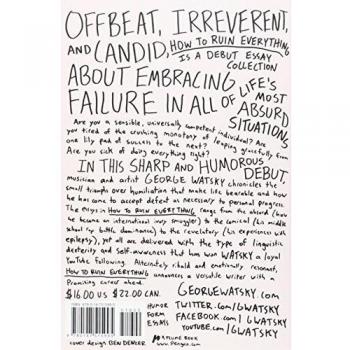 OFFBEAT, IRREVERENT,
AND CANDID, HOW TO RUIN EVERYTHING
IS A DEBUT ESSAY
COLLECTION
ABOUT EMBRACING
FAILURE IN ALL OF LIFE'S
MOST
ABSURD
SITUATIONS
Are you a sensible, universally competent individual? Are
you tired of the crushing monotony of leaping gracefully from
one lily pad of success to the next?
Are you sick of doing everything right?
IN THIS SHARP AND HUMOROUS
DEBUT,
musician and artist GEORGE WATSKY chronicles the
small triumphs over humiliation that make life bearable and how
he has come to accept defeat as necessary to personal progress.
The essays in HOW TO RUIN EVERYTHING range from the absurd (how
he became an international ivory smuggler) to the comical (his middle
school rap battle dominance) to the revelatory (his experiences with
epilepsy), yet all are delivered with the type of linguistic
dexterity and self-awareness that has won WATSKY a loyal
YouTube following. Alternately ribald and emotionally resonant,
HOW TO RUIN EVERYTHING announces a versatile writer with a
promising career ahead.
$16.00 US $22.00 CAN.
GEORGEWATSKY.com
TWITTER.com/GWATSKY
FACEBOOK.com/GWATSKY
YOUTUBE.com/GWATSKY
HUMOR
FORM
ESSAYS
A PLUME BOOK
www.penguin.com
cover design BEN DENZER